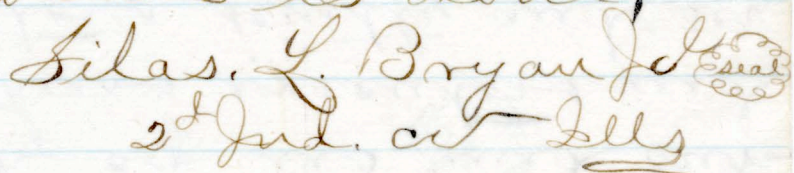 Silas. L. Bryan Jd seal
2d Jud. ct Ills